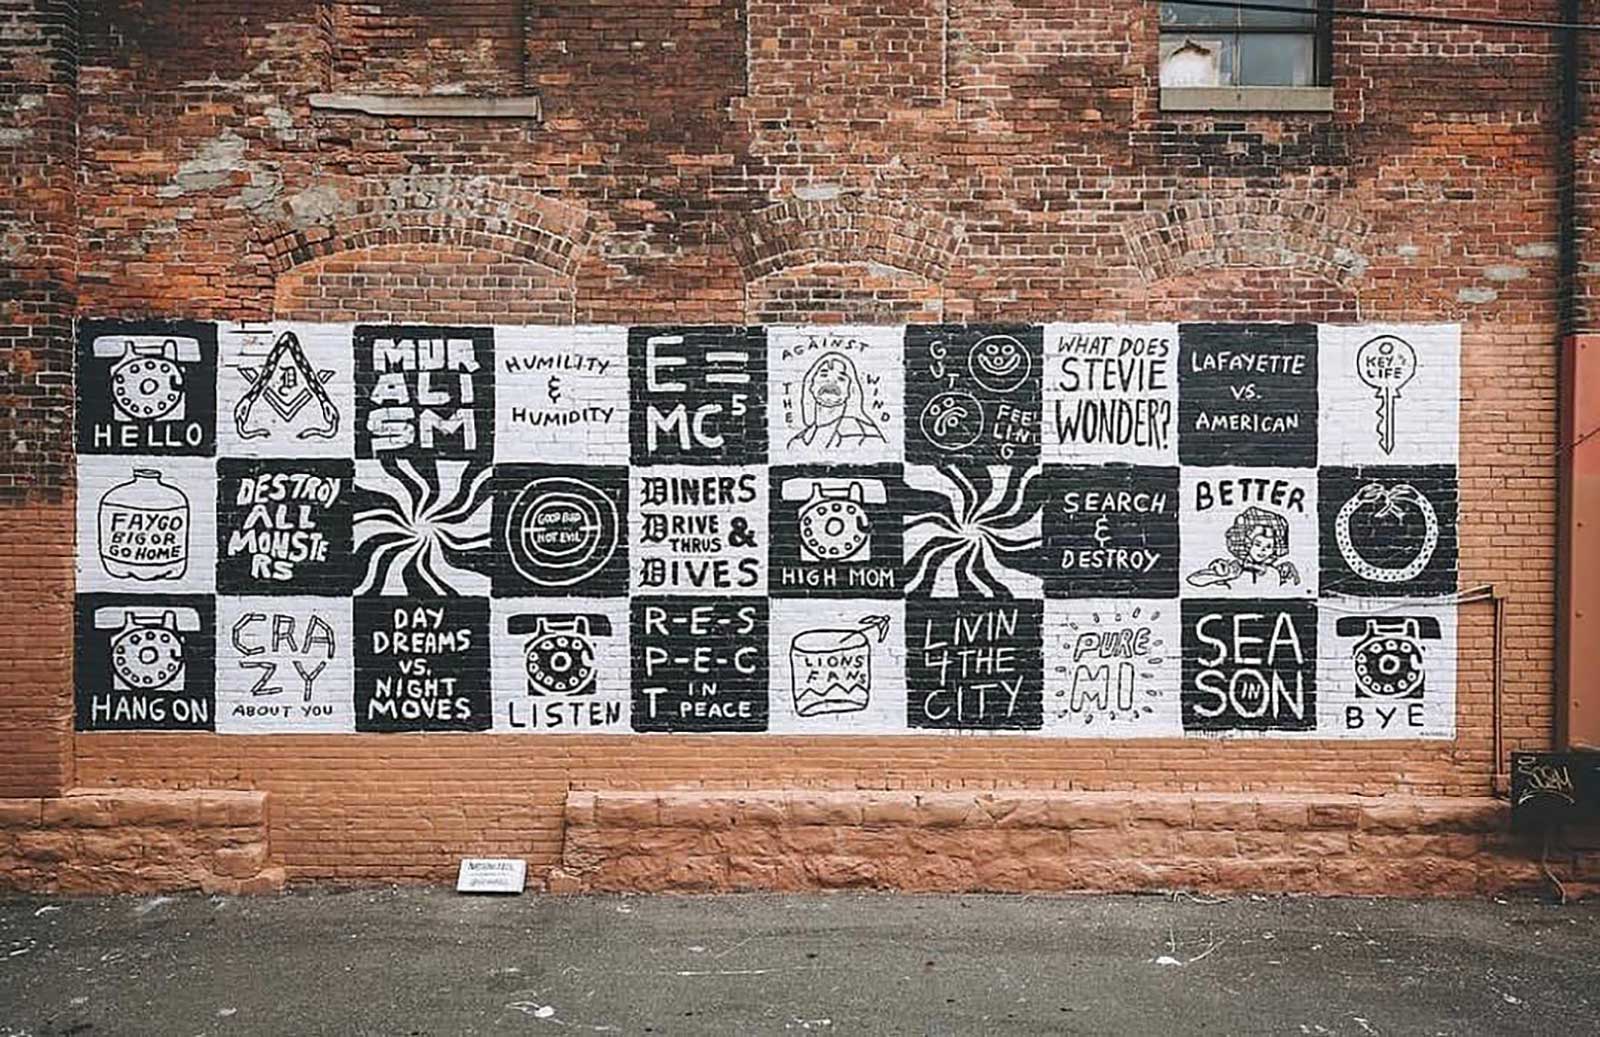 HELLO
D
MUR
ALI
SM
HUMILITY
&
HUMIDITY
E =
MC5
AGAINST
THE
WIND
GUT
FEE
LIN
G
WHAT DOES
STEVIE
WONDER?
LAFAYETTE
VS.
AMERICAN
KEY'S
LIFE
FAYGO
BIG OR
GO HOME
DESTROY
ALL
MONSTE
RS
GOOD BAD
NOT EVIL
DINERS
DRIVE
THRUS &
DIVES
HIGH MOM
SEARCH
&
DESTROY
BETTER
HANG ON
CRA
ZY
ABOUT YOU
DAY
DREAMS
VS.
NIGHT
MOVES
LISTEN
R-E-S
P-E-C
T IN
PEACE
LIONS
FANS
LIVIN
4 THE
CITY
PURE
MI
SEA
IN
SON
BYE